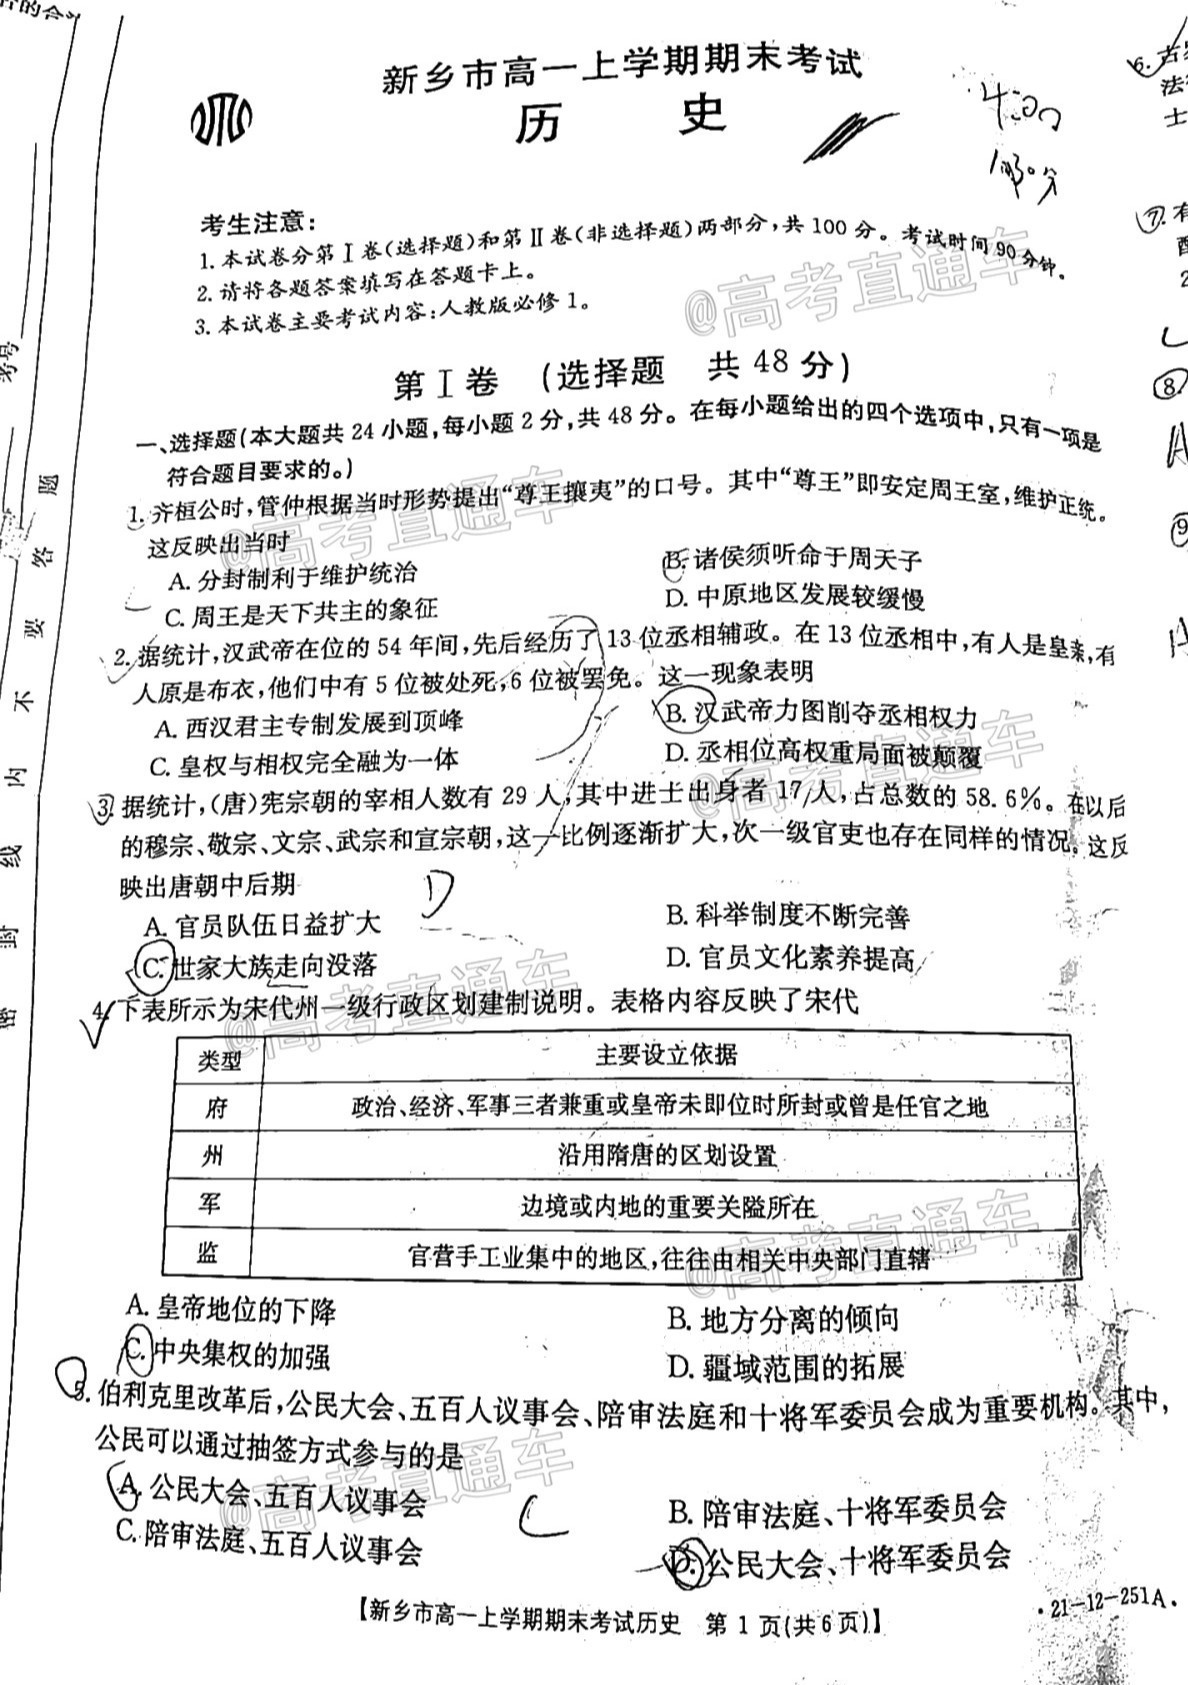 新乡市高一上学期期末考试
历 史
考生注意：
1. 本试卷分第Ⅰ卷(选择题)和第Ⅱ卷(非选择题)两部分，共100分。考试时间90分钟。
2. 请将各题答案填写在答题卡上。
3. 本试卷主要考试内容：人教版必修1。
第Ⅰ卷 (选择题 共48分)
一、选择题(本大题共24小题，每小题2分，共48分。在每小题给出的四个选项中，只有一项是
符合题目要求的。)
1. 齐桓公时，管仲根据当时形势提出“尊王攘夷”的口号。其中“尊王”即安定周王室，维护正统。
这反映出当时
A. 分封制利于维护统治 B. 诸侯须听命于周天子
C. 周王是天下共主的象征 D. 中原地区发展较缓慢
2. 据统计，汉武帝在位的54年间，先后经历了13位丞相辅政。在13位丞相中，有人是皇亲，有
人原是布衣，他们中有5位被处死，6位被罢免。这一现象表明
A. 西汉君主专制发展到顶峰 B. 汉武帝力图削夺丞相权力
C. 皇权与相权完全融为一体 D. 丞相位高权重局面被颠覆
3. 据统计，(唐)宪宗朝的宰相人数有29人，其中进士出身者17人，占总数的58.6%。在以后
的穆宗、敬宗、文宗、武宗和宣宗朝，这一比例逐渐扩大，次一级官吏也存在同样的情况。这反
映出唐朝中后期
D
A. 官员队伍日益扩大 B. 科举制度不断完善
C. 世家大族走向没落 D. 官员文化素养提高
4. 下表所示为宋代州一级行政区划建制说明。表格内容反映了宋代
类型 主要设立依据
府 政治、经济、军事三者兼重或皇帝未即位时所封或曾是任官之地
州 沿用隋唐的区划设置
军 边境或内地的重要关隘所在
监 官营手工业集中的地区，往往由相关中央部门直辖
A. 皇帝地位的下降 B. 地方分离的倾向
C. 中央集权的加强 D. 疆域范围的拓展
5. 伯利克里改革后，公民大会、五百人议事会、陪审法庭和十将军委员会成为重要机构。其中，
公民可以通过抽签方式参与的是
A. 公民大会、五百人议事会 B. 陪审法庭、十将军委员会
C
C. 陪审法庭、五百人议事会 D. 公民大会、十将军委员会
【新乡市高一上学期期末考试历史 第1页(共6页)】
·21-12-251A·
密 封 线 内 不 要 答 题
考号
@高考直通车
@高考直通车
@高考直通车
@高考直通车
@高考直通车
@高考直通车
6. 古
法
士
7. 有
2
8.
A
9